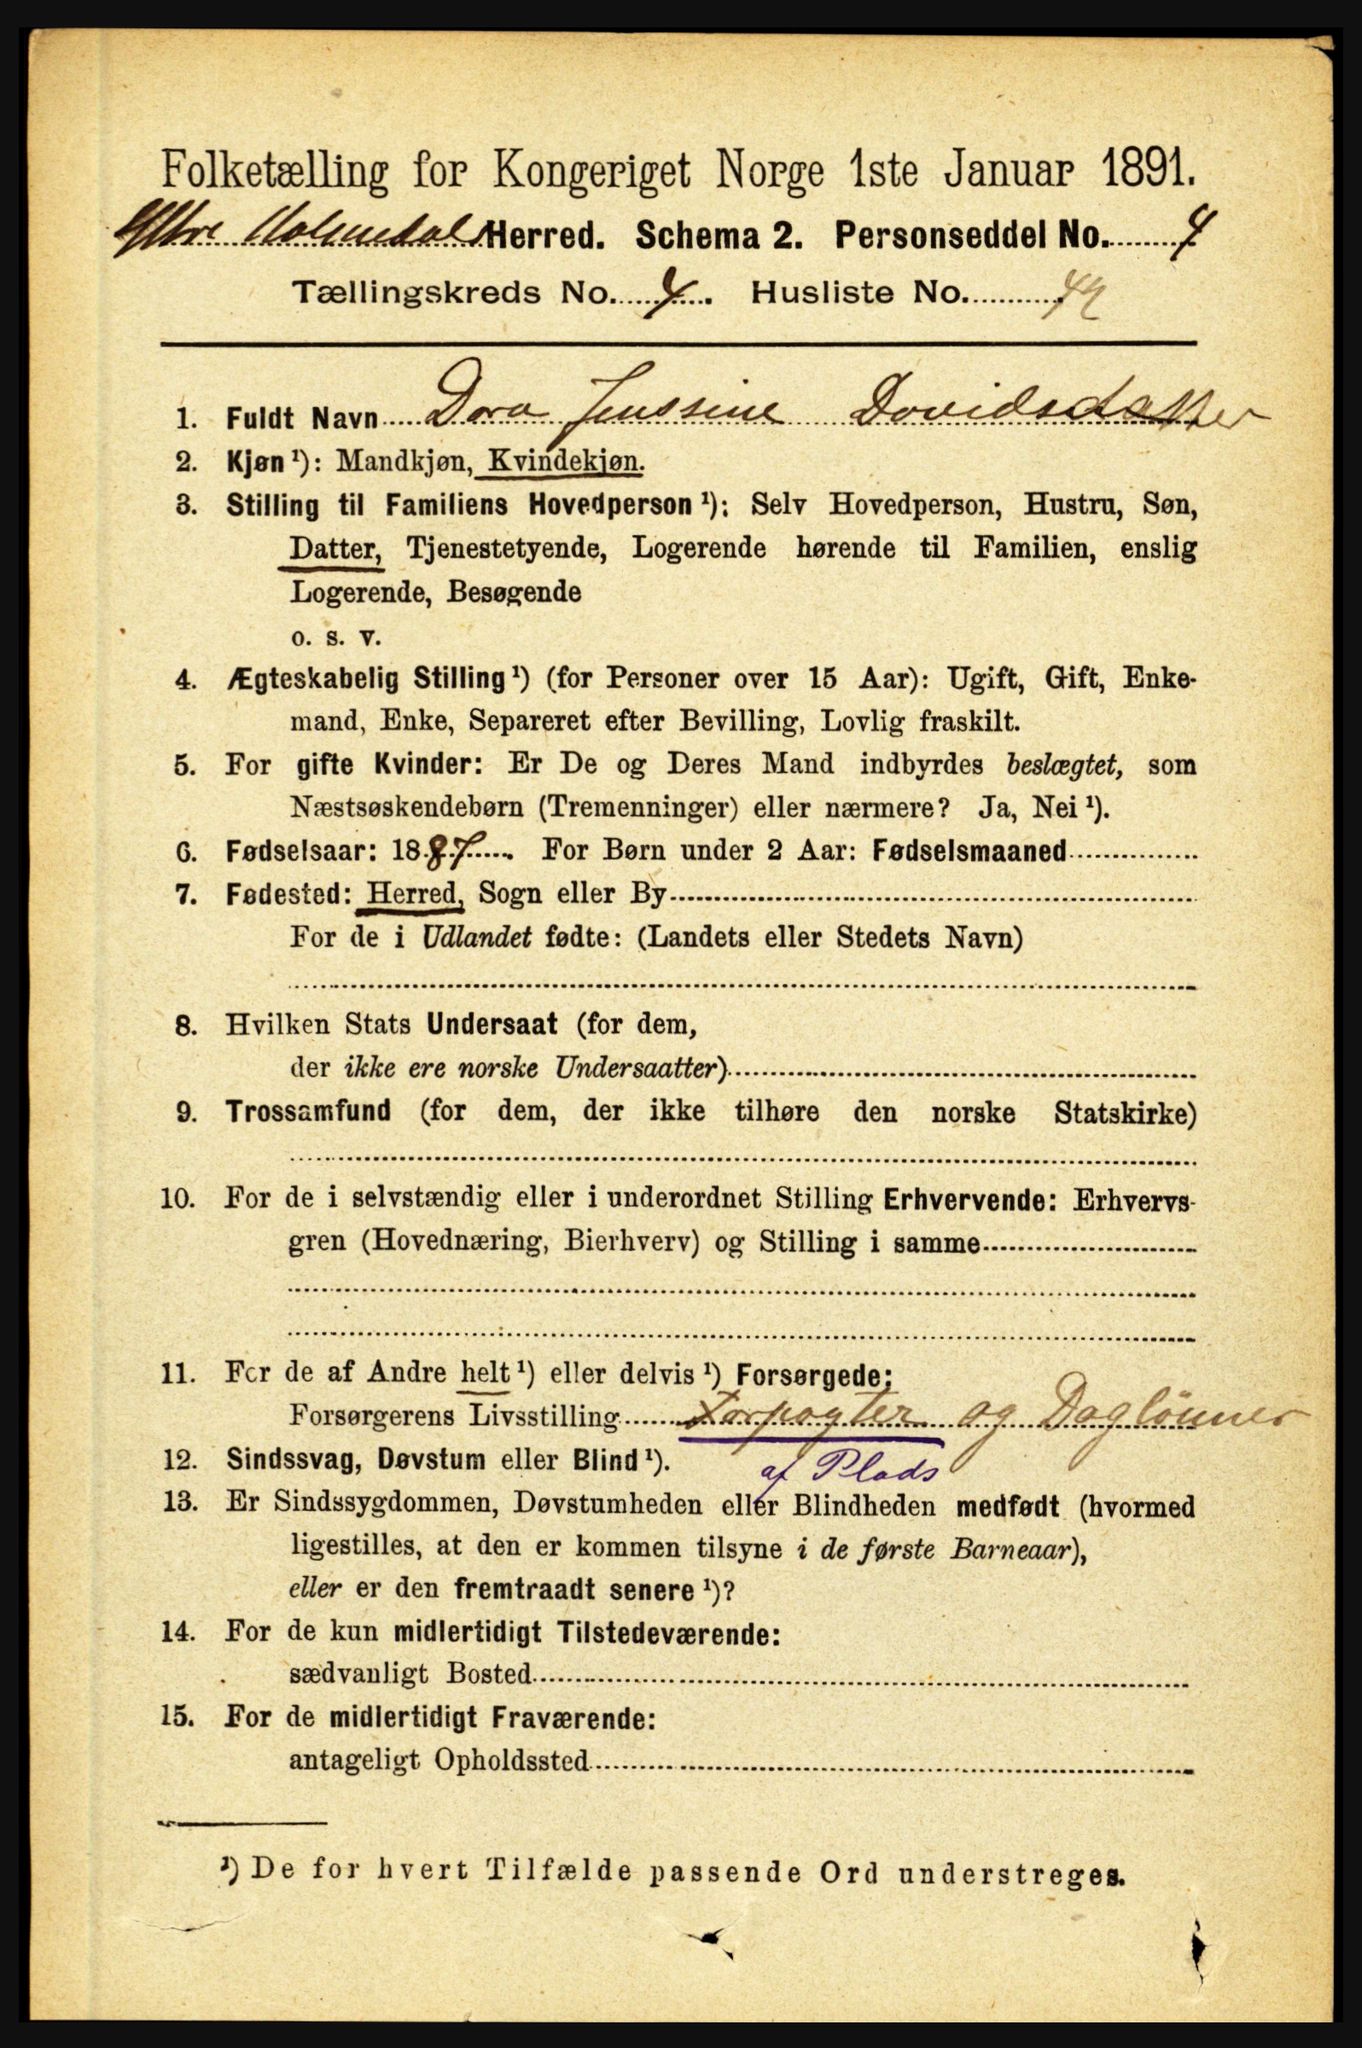 Folketælling for Kongeriget Norge 1ste Januar 1891.
Ytre Holmedals Herred. Schema 2. Personseddel No. 4
Tællingskreds No. 4. Husliste No.
1. Fuldt Navn Dora Jenssine Davidsdatter
2. Kjøn ¹): Mandkjøn, Kvindekjøn.
3. Stilling til Familiens Hovedperson ¹): Selv Hovedperson, Hustru, Søn,
Datter, Tjenestetyende, Logerende hørende til Familien, enslig
Logerende, Besøgende
o. s. v.
4. Ægteskabelig Stilling ¹) (for Personer over 15 Aar): Ugift, Gift, Enke-
mand, Enke, Separeret efter Bevilling, Lovlig fraskilt.
5. For gifte Kvinder: Er De og Deres Mand indbyrdes beslægtet, som
Næstsøskendebørn (Tremenninger) eller nærmere? Ja, Nei ¹).
6. Fødselsaar: 1887. For Børn under 2 Aar: Fødselsmaaned
7. Fødested: Herred, Sogn eller By
For de i Udlandet fødte: (Landets eller Stedets Navn)
8. Hvilken Stats Undersaat (for dem,
der ikke ere norske Undersaatter)
9. Trossamfund (for dem, der ikke tilhøre den norske Statskirke)
10. For de i selvstændig eller i underordnet Stilling Erhvervende: Erhvervs-
gren (Hovednæring, Bierhverv) og Stilling i samme
11. For de af Andre helt ¹) eller delvis ¹) Forsørgede:
Forsørgerens Livsstilling Forpagter og Daglønner
12. Sindssvag, Døvstum eller Blind ¹). af Plads
13. Er Sindssygdommen, Døvstumheden eller Blindheden medfødt (hvormed
ligestilles, at den er kommen tilsyne i de første Barneaar),
eller er den fremtraadt senere ¹)?
14. For de kun midlertidigt Tilstedeværende:
sædvanligt Bosted
15. For de midlertidigt Fraværende:
antageligt Opholdssted
¹) De for hvert Tilfælde passende Ord understreges.